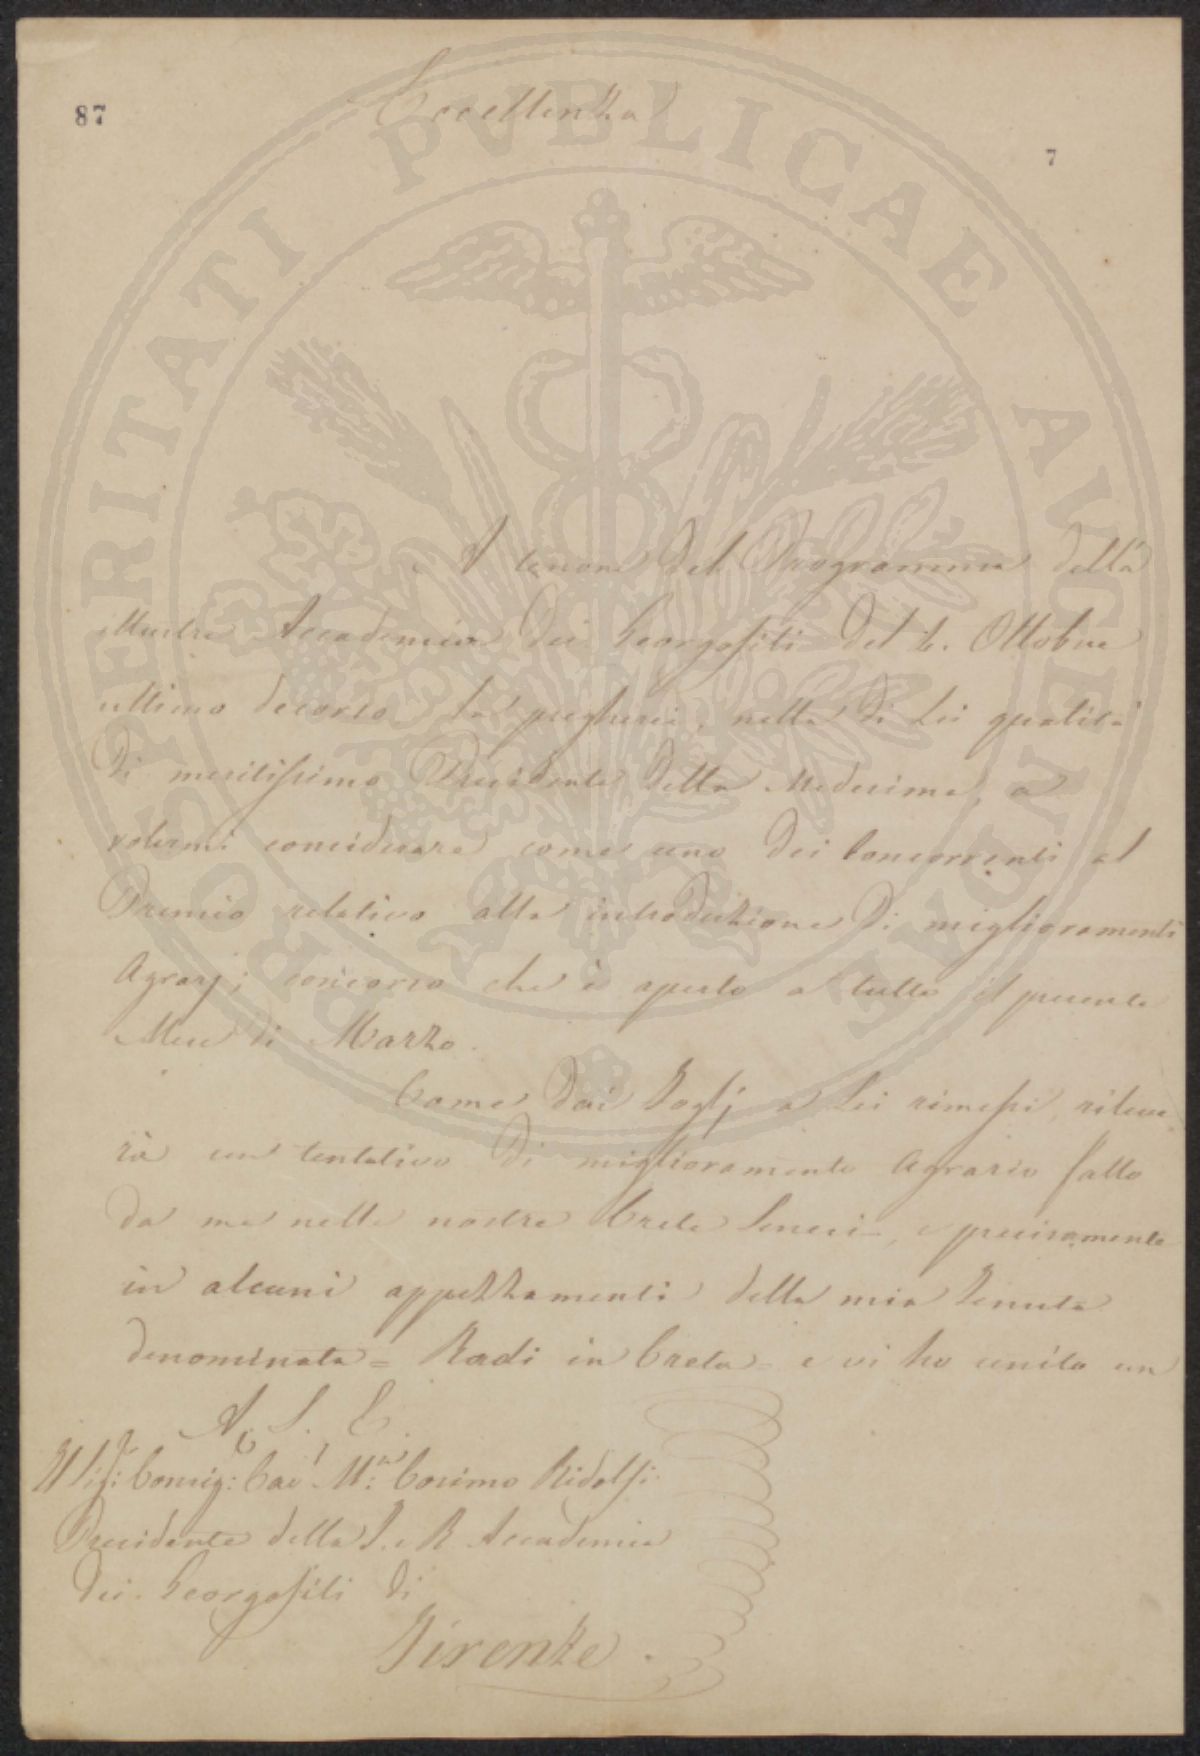 87
Eccellenza
7
A tenore del Programma della
illustre Accademia dei Georgofili del 6. Ottobre
ultimo decorso La pregherei, nella di Lei qualità
di meritissimo Presidente della Medesima, a
volermi considerare come uno dei Concorrenti al
Premio relativo alla introduzione di miglioramenti
Agrarj; concorso che è aperto a tutto il presente
Mese di Marzo.
Come dai Foglj a Lei rimessi, rileve
rà un tentativo di miglioramento Agrario fatto
da me nelle nostre Crete Senesi, e precisamente
in alcuni appezzamenti della mia Tenuta
denominata = Radi in Creta = e vi ho unito un
A. S. E.
Il Sig: Consig: Cav: M: Cosimo Ridolfi
Presidente della I. e R. Accademia
dei Georgofili di
Firenze.
PROSPERITATI PVBLICAE AVGENDAE